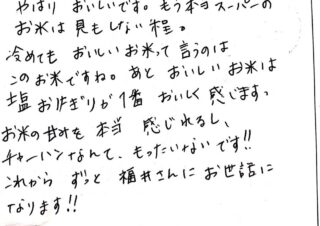 やはり おいしいです。もう本当スーパーの
お米は見もしない程。
冷めても おいしいお米って言うのは
このお米ですね。あと おいしいお米は
塩おにぎりが1番 おいしく感じます。
お米の甘みを 本当 感じれるし、
チャーハンなんて、もったいないです!!
これから ずっと 福井さんに お世話に
なります!!